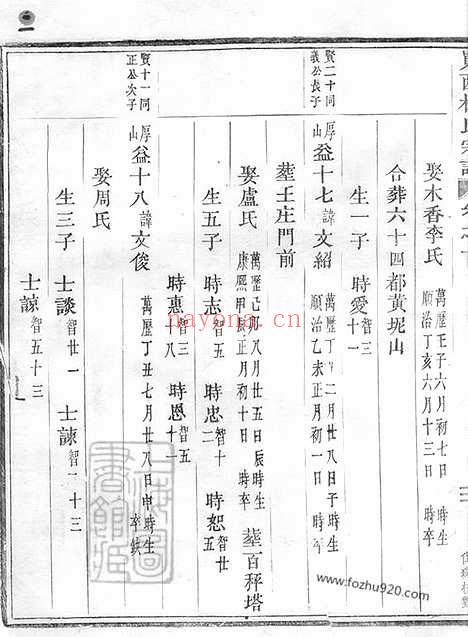 娶木香李氏 萬歷壬子六月初七日 時生 順治丁亥六月十三日 時卒
合葬六十四都黃坭山
生一子 時愛智三十一
賢二十同義公長子
厚山 益十七諱文紹 萬歷丁 二月廿八日子時生 順治乙未正月初一日 時卒
葬王庄門前
娶盧氏 萬歷己 八月廿五日辰時生 康熙甲 正月初十日 時卒 葬百秤塔
生五子 時志智五 時忠智十二 時恕智廿五
時惠智三十八 時恩智五十一
賢十一同正公次子
厚山 益十八諱文俊 萬歷丁丑七月廿八日申時生 卒缺
娶周氏
生三子 士談智廿一 士諫智一十三
士諒智五十三
nayona.cn
www.fozhu920.com